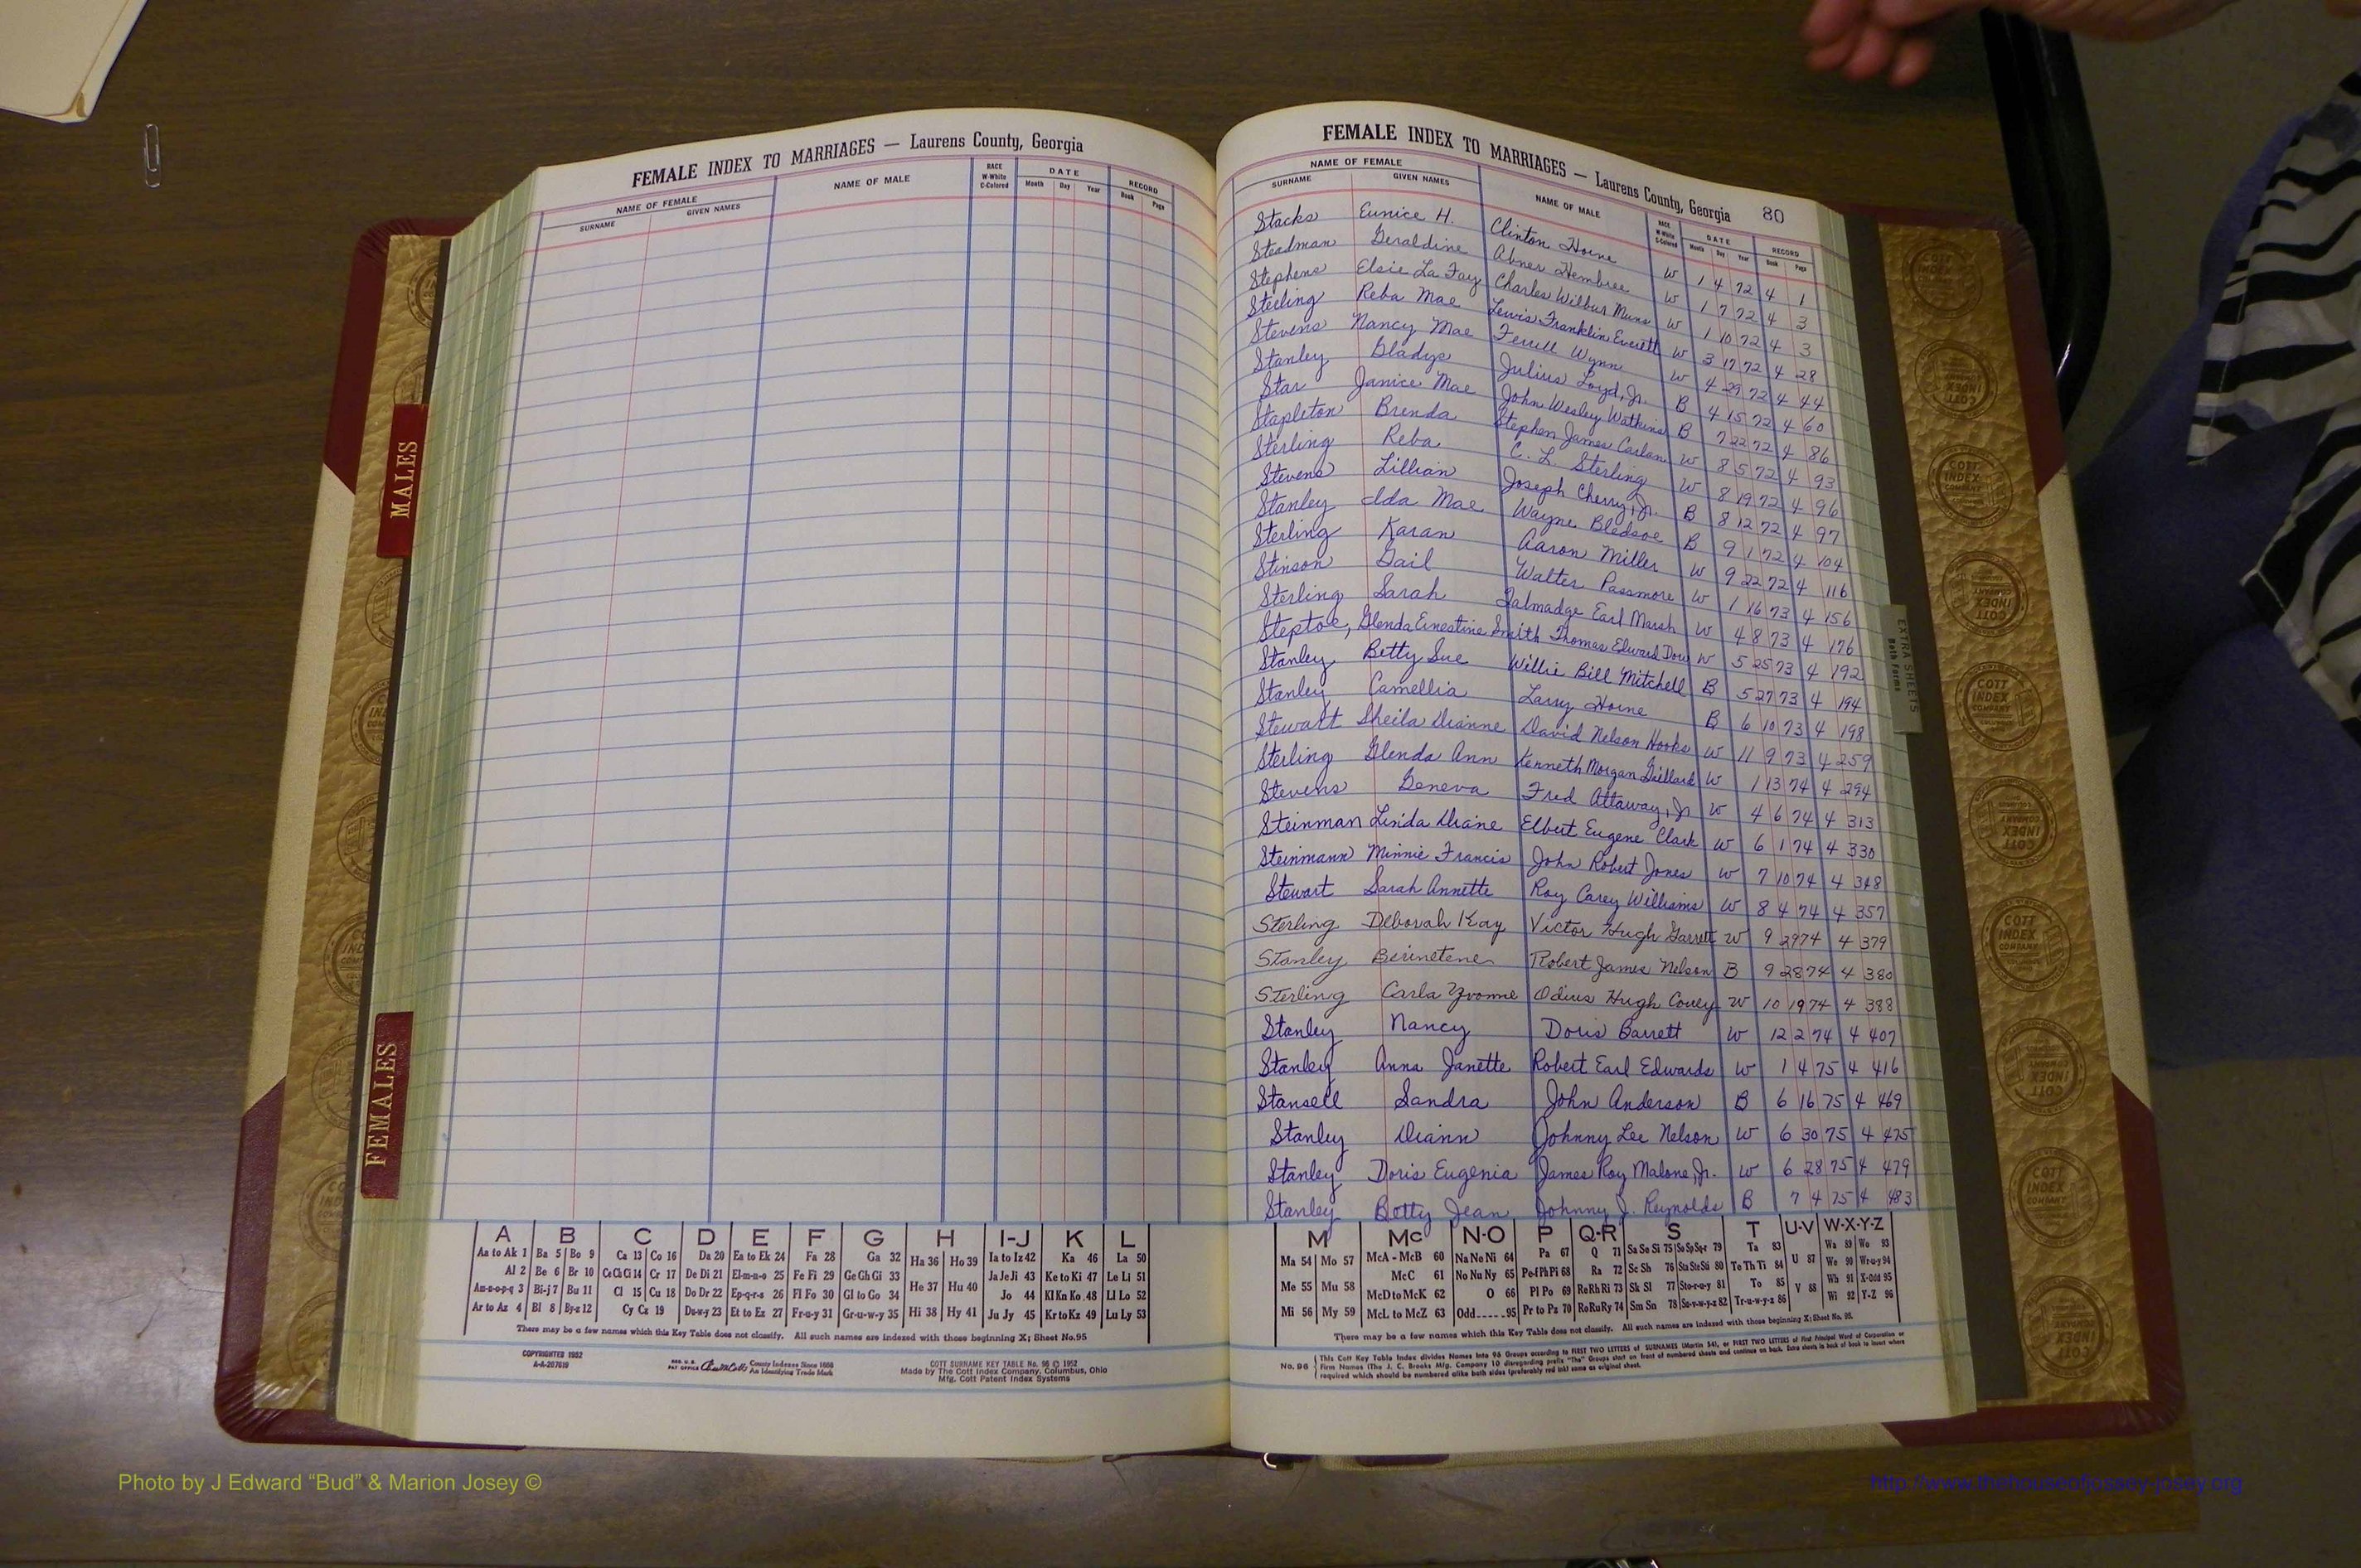 FEMALE INDEX TO MARRIAGES — Laurens County, Georgia
NAME OF FEMALE
SURNAME GIVEN NAMES NAME OF MALE RACE W-White C-Colored DATE Month Day Year RECORD Book Page
MALES
FEMALES
A B C D E F G H I-J K L
Aa to Ak 1 Ba 5 Bo 9 Ca 13 Co 16 Da 20 Ea to Ek 24 Fa 28 Ga 32 Ha 36 Ho 39 Ia to Iz 42 Ka 46 La 50
Al 2 Be 6 Br 10 Ce Ch Ci 14 Cr 17 De Di 21 El-m-n-o 25 Fe Fi 29 Ge Gh Gi 33 He 37 Hu 40 Ja Je Ji 43 Ke to Ki 47 Le Li 51
Am-n-o-p-q 3 Bi-j 7 Bu 11 Cl 15 Cu 18 Do Dr 22 Ep-q-r-s 26 Fl Fo 30 Gl to Go 34 Jo 44 Kl Kn Ko 48 Ll Lo 52
Ar to Az 4 Bl 8 By-z 12 Cy Cz 19 Du-w-y 23 Et to Ez 27 Fr-u-y 31 Gr-u-w-y 35 Hi 38 Hy 41 Ju Jy 45 Kr to Kz 49 Lu Ly 53
There may be a few names which this Key Table does not classify. All such names are indexed with those beginning X; Sheet No. 95
COPYRIGHTED 1952
A-A-207619
REG. U.S. PAT OFFICE County Indexes Since 1888
An Identifying Trade Mark
COTT SURNAME KEY TABLE No. 96 © 1952
Made by The Cott Index Company, Columbus, Ohio
Mfg. Cott Patent Index Systems
FEMALE INDEX TO MARRIAGES — Laurens County, Georgia 80
NAME OF FEMALE
SURNAME GIVEN NAMES NAME OF MALE RACE W-White C-Colored DATE Month Day Year RECORD Book Page
Stacks Eunice H. Clinton Horne W 1 4 72 4 1
Steadman Geraldine Abner Hembree W 1 7 72 4 3
Stephens Elsie La Fay Charles Wilbur W 1 10 72 4 3
Sterling Reba Mae Lewis Franklin Everett W 3 17 72 4 28
Stevens Nancy Mae Ferrell Wynn W 4 29 72 4 44
Stanley Gladys Julius Loyd, Jr. B 4 15 72 4 60
Star Janice Mae John Wesley Watkins B 7 22 72 4 86
Stapleton Brenda Stephen James W 8 5 72 4 93
Sterling Reba C. L. Sterling W 8 19 72 4 96
Stevens Lillian Joseph Cherry, Jr. B 8 12 72 4 97
Stanley Ida Mae Wayne Bledsoe B 9 1 72 4 104
Sterling Karan Aaron Miller W 9 22 72 4 116
Stinson Gail Walter Passmore W 1 16 73 4 156
Sterling Sarah Talmadge Earl Marsh W 4 8 73 4 176
Steptoe, Glenda Ernestine Smith Thomas Edward W 5 25 73 4 192
Stanley Betty Sue Willie Bill Mitchell B 5 27 73 4 194
Stanley Camellia Larry Horne B 6 10 73 4 198
Stewart Sheila Dianne David Nelson Hooks W 11 9 73 4 259
Sterling Glenda Ann Kenneth Morgan Gaillard W 1 13 74 4 294
Stevens Geneva Fred Attaway, Jr W 4 6 74 4 313
Steinman Linda Diane Elbert Eugene Clark W 6 1 74 4 330
Steinmann Minnie Francis John Robert Jones W 7 10 74 4 348
Stewart Sarah Annette Roy Carey Williams W 8 4 74 4 357
Sterling Deborah Kay Victor Hugh Garrett W 9 29 74 4 379
Stanley Robert James Nelson B 9 28 74 4 380
Sterling Carla Yvonne Odius Hugh Covey W 10 19 74 4 388
Stanley Nancy Doris Barrett W 12 2 74 4 407
Stanley Anna Janette Robert Earl Edwards W 1 4 75 4 416
Stansell Sandra John Anderson B 6 16 75 4 469
Stanley Diann Johnny Lee Nelson W 6 30 75 4 475
Stanley Doris Eugenia James Roy Malone, Jr. W 6 28 75 4 479
Stanley Betty Jean Johnny J. Reynolds B 7 4 75 4 483
EXTRA SHEETS
Both Forms
M Mc N-O P Q-R S T U-V W-X-Y-Z
Ma 54 Mo 57 McA - McB 60 Na Ne Ni 64 Pa 67 Q 71 Sa Se Si 75 So Sp Sq-r 79 Ta 83 U 87 Wa 89 Wo 93
Me 55 Mu 58 McC 61 No Nu Ny 65 Pe-f Ph Pi 68 Ra 72 Sc Sh 76 Sta Ste Sti 80 Te Th Ti 84 We 90 Wr-u-y 94
McD to McK 62 O 66 Pl Po 69 Re Rh Ri 73 Sk Sl 77 Sto-r-u-y 81 To 85 V 88 Wh 91 X-Odd 95
Mi 56 My 59 McL to McZ 63 Odd-----95 Pr to Pz 70 Ro Ru Ry 74 Sm Sn 78 Su-v-w-y-z 82 Tr-u-w-y-z 86 Wi 92 Y-Z 96
There may be a few names which this Key Table does not classify. All such names are indexed with those beginning X; Sheet No. 95.
No. 96 This Cott Key Table Index divides Names into 96 Groups according to FIRST TWO LETTERS of SURNAMES (Martin 54), or FIRST TWO LETTERS of First Principal Word of Corporation or
Firm Names (The J. C. Brooks Mfg. Company 10 disregarding prefix "The" Groups start on front of numbered sheets and continue on back. Extra sheets in back of book to insert where
required which should be numbered alike both sides (preferably red ink) same as original sheet.
Photo by J Edward “Bud” & Marion Josey ©
http://www.thehouseofjossey-josey.org